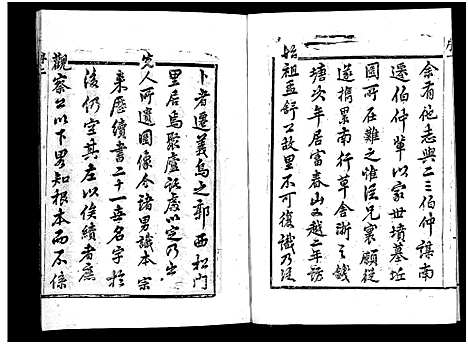 余有他志與二三伯仲謀南
遷伯仲輩以家世墳墓坵
園所在難之惟從兄寰願從
遂攜累南行草舍浙之錢
塘次年居富春山又越二年訪
始祖孟舒公故里不可復識乃復
卜者遷義烏之郭西松門
里居焉聚廬託處以定乃出
先人所遺圖像令諸男識本宗
來歷續書二十一世名字於
後仍空其左以俟續者庶
觀察公以下男知根本而不係